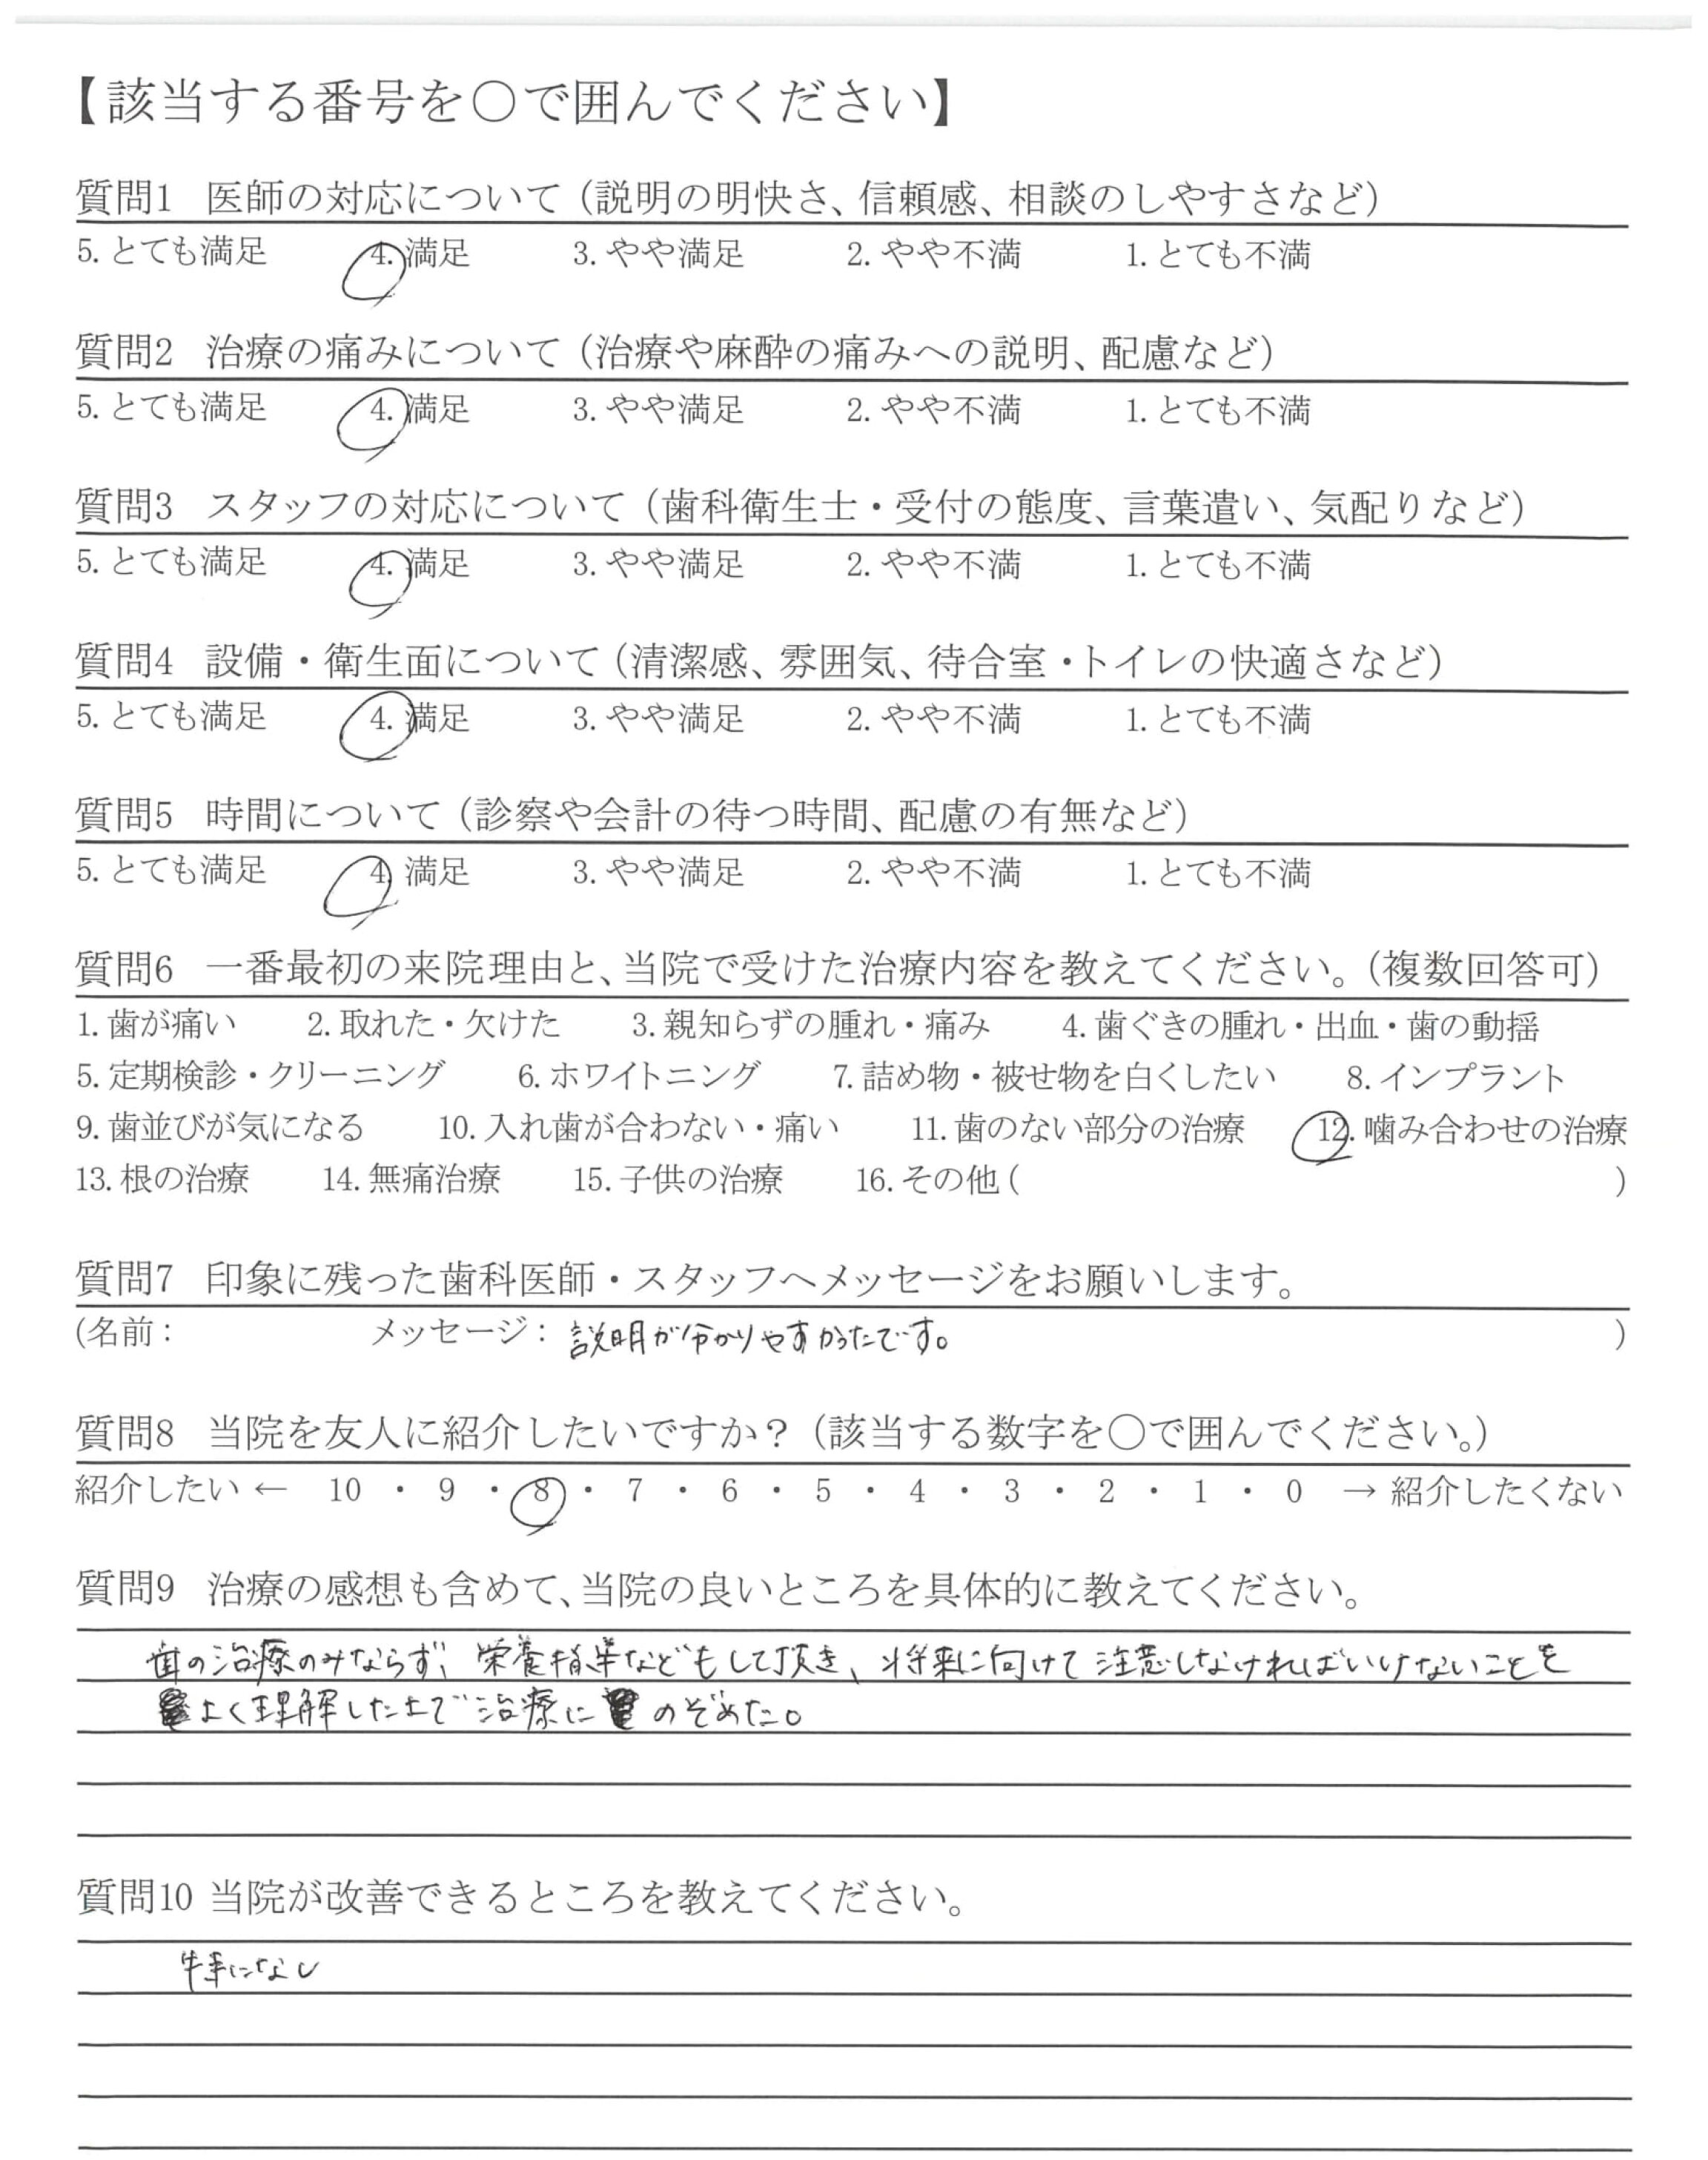 【該当する番号を○で囲んでください】
質問1 医師の対応について（説明の明快さ、信頼感、相談のしやすさなど）
5. とても満足 4. 満足 3. やや満足 2. やや不満 1. とても不満
質問2 治療の痛みについて（治療や麻酔の痛みへの説明、配慮など）
5. とても満足 4. 満足 3. やや満足 2. やや不満 1. とても不満
質問3 スタッフの対応について（歯科衛生士・受付の態度、言葉遣い、気配りなど）
5. とても満足 4. 満足 3. やや満足 2. やや不満 1. とても不満
質問4 設備・衛生面について（清潔感、雰囲気、待合室・トイレの快適さなど）
5. とても満足 4. 満足 3. やや満足 2. やや不満 1. とても不満
質問5 時間について（診察や会計の待つ時間、配慮の有無など）
5. とても満足 4. 満足 3. やや満足 2. やや不満 1. とても不満
質問6 一番最初の来院理由と、当院で受けた治療内容を教えてください。（複数回答可）
1. 歯が痛い 2. 取れた・欠けた 3. 親知らずの腫れ・痛み 4. 歯ぐきの腫れ・出血・歯の動揺
5. 定期検診・クリーニング 6. ホワイトニング 7. 詰め物・被せ物を白くしたい 8. インプラント
9. 歯並びが気になる 10. 入れ歯が合わない・痛い 11. 歯のない部分の治療 12. 噛み合わせの治療
13. 根の治療 14. 無痛治療 15. 子供の治療 16. その他 ( )
質問7 印象に残った歯科医師・スタッフへメッセージをお願いします。
(名前： メッセージ： 説明が分かりやすかったです。 )
質問8 当院を友人に紹介したいですか？（該当する数字を○で囲んでください。）
紹介したい ← 10 ・ 9 ・ 8 ・ 7 ・ 6 ・ 5 ・ 4 ・ 3 ・ 2 ・ 1 ・ 0 → 紹介したくない
質問9 治療の感想も含めて、当院の良いところを具体的に教えてください。
歯の治療のみならず、栄養指導などもして頂き、将来に向けて注意しなければいけないことを
よく理解した上で治療にのぞめた。
質問10 当院が改善できるところを教えてください。
特になし